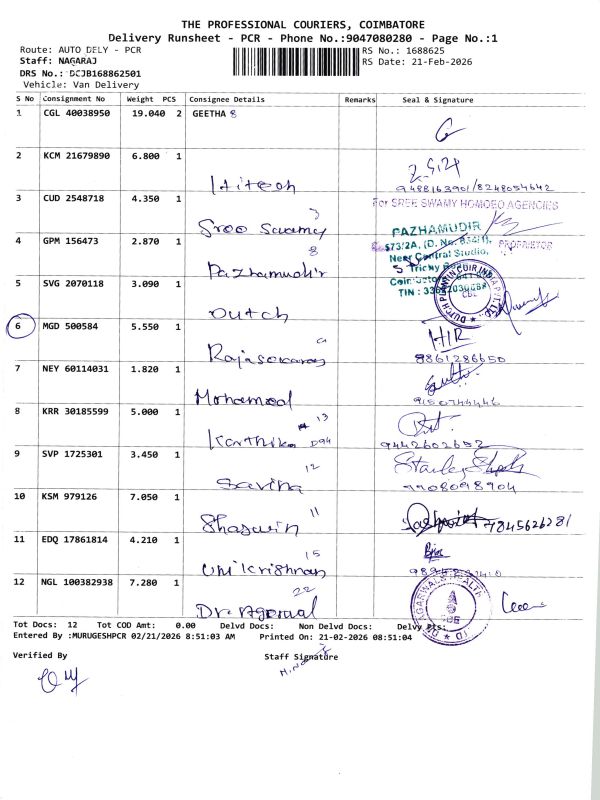 THE PROFESSIONAL COURIERS, COIMBATORE
Delivery Runsheet - PCR - Phone No.:9047080280 - Page No.:1
Route: AUTO DELY - PCR RS No.: 1688625
Staff: NAGARAJ RS Date: 21-Feb-2026
DRS No.: DCJB168862501
Vehicle: Van Delivery
S No Consignment No Weight PCS Consignee Details Remarks Seal & Signature
1 CGL 40038950 19.040 2 GEETHA 8
2 KCM 21679890 6.800 1
Hitech 9488163901/8248054642
3 CUD 2548718 4.350 1 For SREE SWAMY HOMOEO AGENCIES
Sree Swamy PAZHAMUDIR
4 GPM 156473 2.870 1 8 PROPRIETOR
Near Central Studio,
Pazhamudir Trichy
5 SVG 2070118 3.090 1
Dutch
6 MGD 500584 5.550 1 HIR
Rajasekaran 8861286650
7 NEY 60114031 1.820 1
Mohamed 9150744446
8 KRR 30185599 5.000 1 13
Karthika D94 9442602652
9 SVP 1725301 3.450 1 12
Savitha 9908098904
10 KSM 979126 7.050 1 11 7845626281
11 EDQ 17861814 4.210 1 15
Unikrishnan
12 NGL 100382938 7.280 1 22
Dr. Agarwal
Tot Docs: 12 Tot COD Amt: 0.00 Delvd Docs: Non Delvd Docs: Delvy Pts:
Entered By :MURUGESHPCR 02/21/2026 8:51:03 AM Printed On: 21-02-2026 08:51:04
Verified By Staff Signature